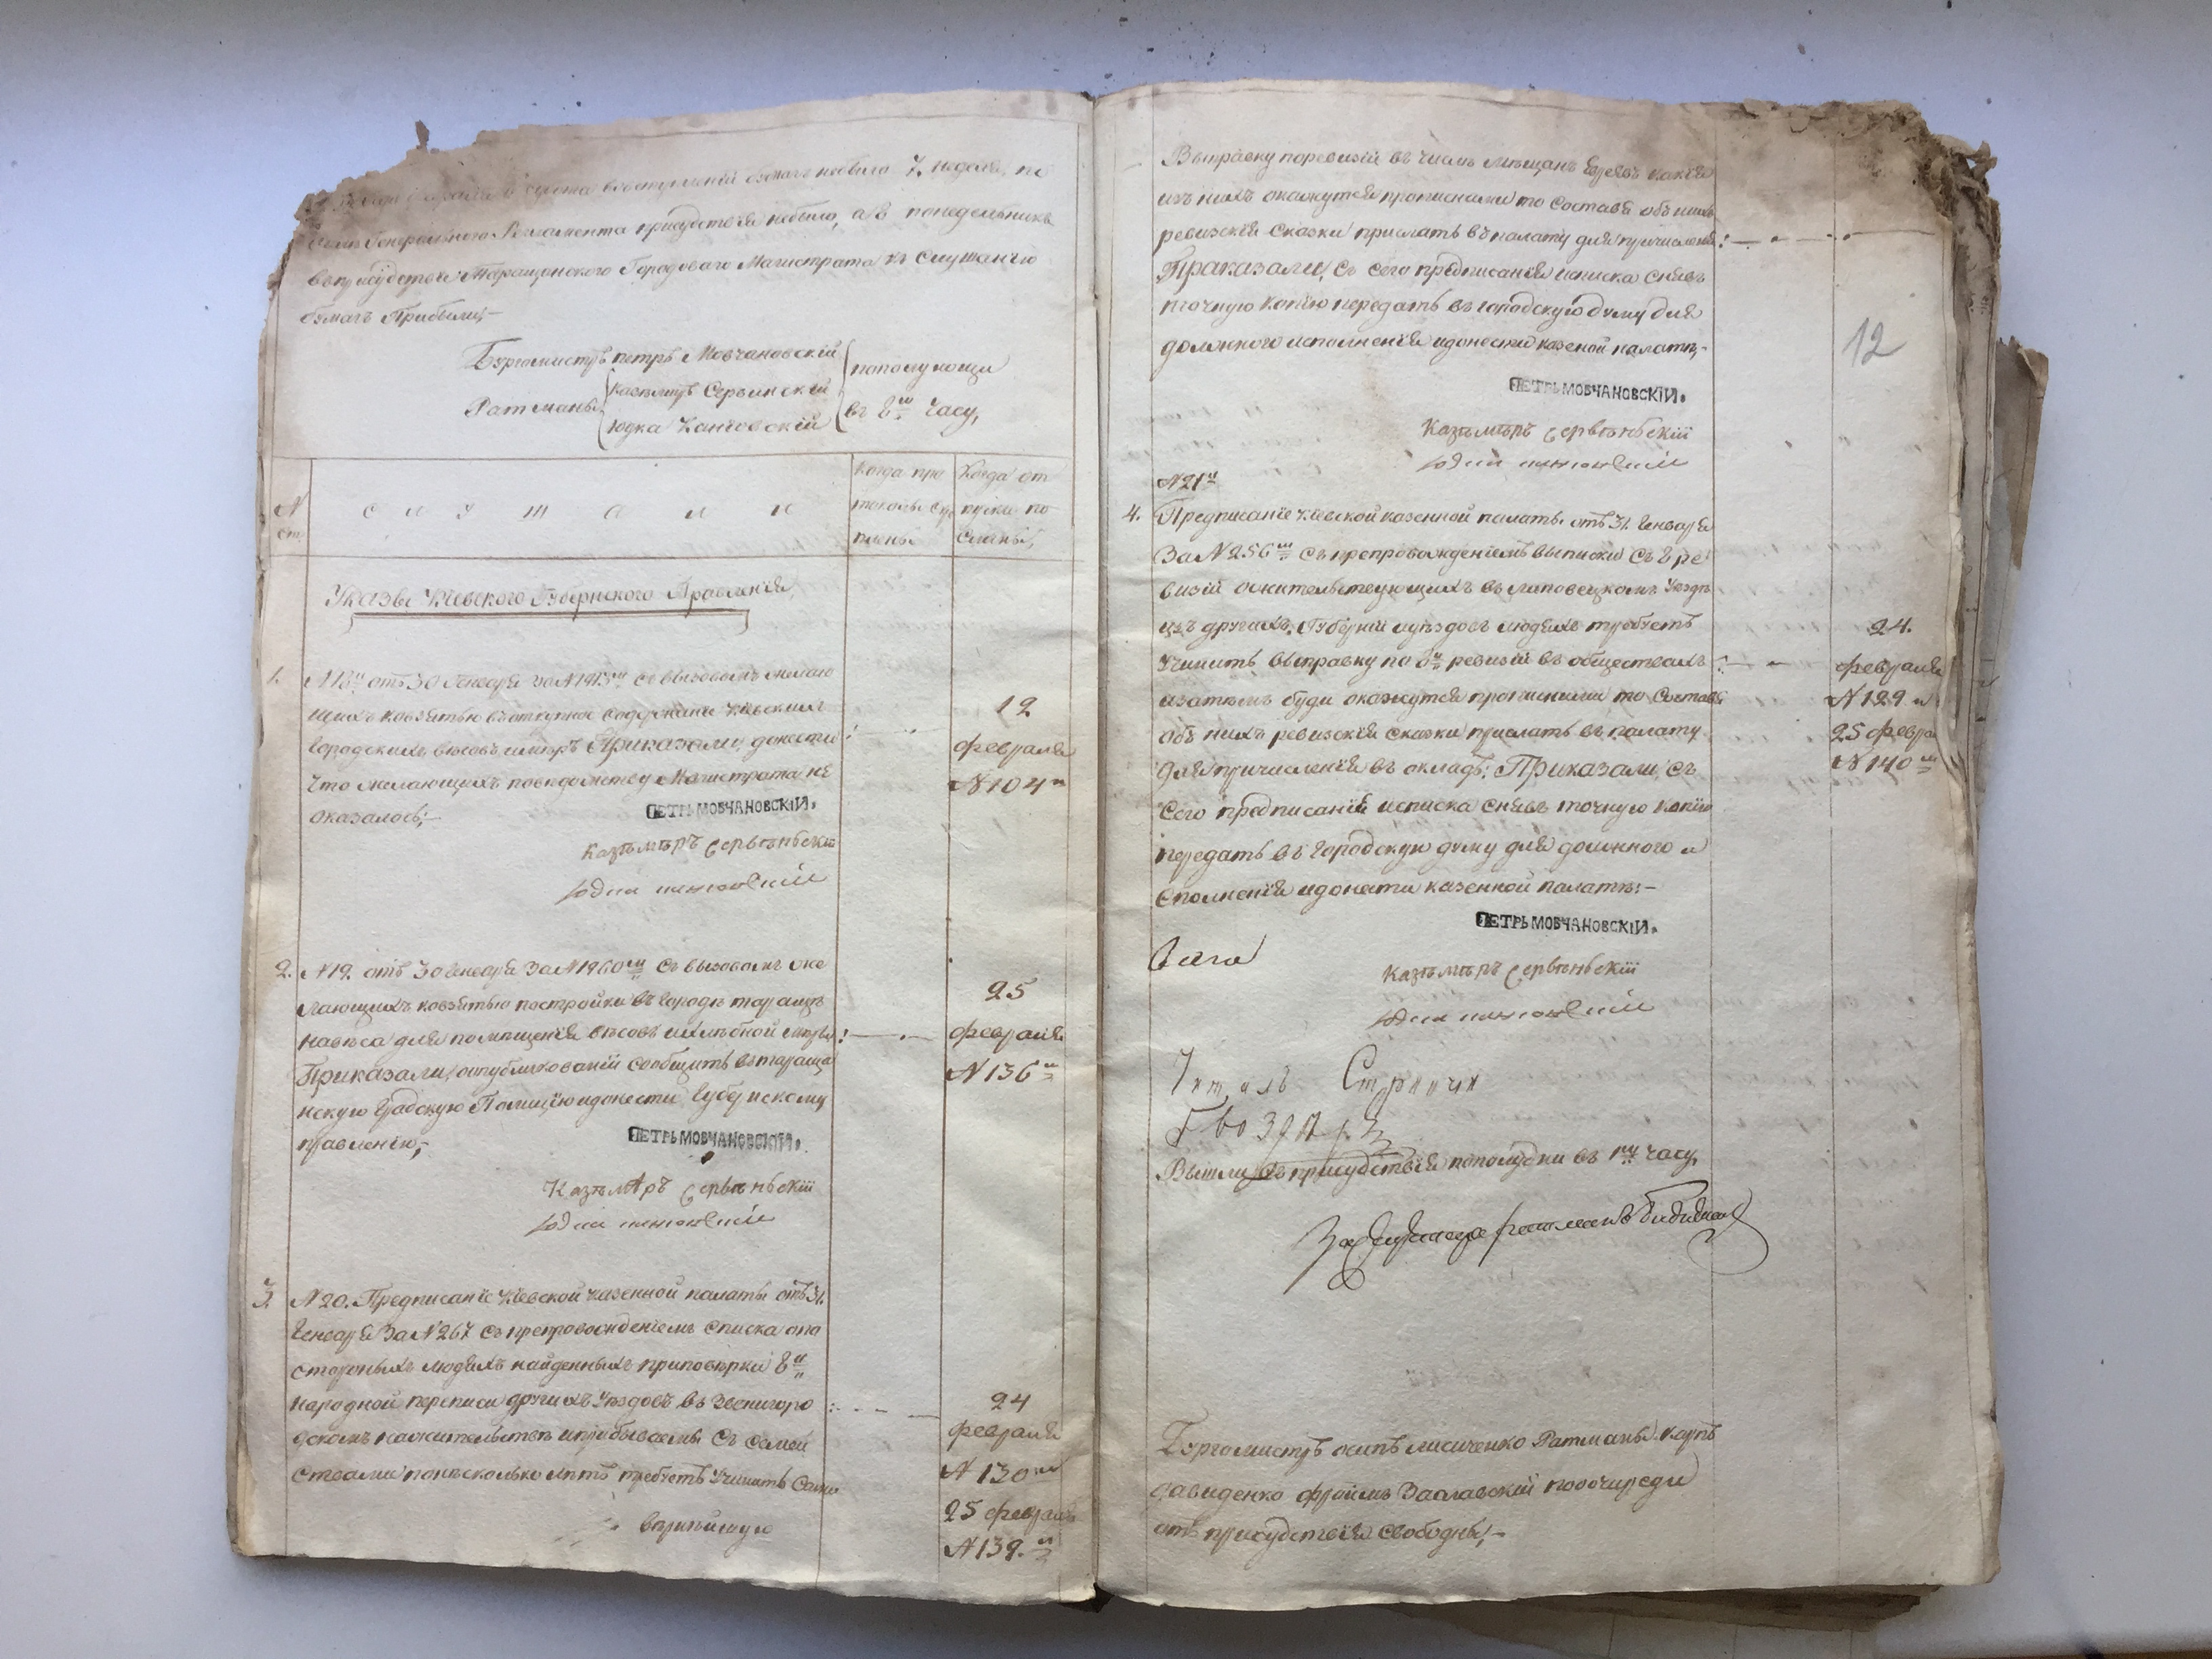 суббота вступленій бумагъ небыло 7, неделя, по
Генеральнаго Регламента присудствія небыло, а 8 понедельникъ
въ присудствіи Таращанского Городоваго Магистрата къ Слушанію
бумагъ Прибыли,-
Бургомистръ петръ Мовчановскій
Ратманы
Казѣмиръ Сервинскій
Юдка Каневскій
пополуночи
въ 8м часу,
N ст.
слушали
Когда про токолы су пысаны
Когда от пуски по сланы,
Указы Кіевского Губернского Правленія,
1. N 18й отъ 30 Генваря за N 1913м Съ вызовомъ желаю
щихъ ковзятью въ откупное содержаніе Кіевскихъ
городскихъ вѣсовъ имѣръ Приказали, донести
что желающихъ поведомству Магистрата не
оказалось;-
12
февраля
N 104м
ПЕТРЬ МОВЧАНОВСКІЙ.
Казѣмѣръ Сервѣньскій
2. N 19. отъ 30 Генваря За N 1960м Съ вызовомъ же
лающихъ ковзятью постройки въ городѣ таращѣ
навѣса для помѣщенія вѣсовъ ихлѣбной мѣры
Приказали, опубликованіи сообщить въ тараща
нскую Градскую Полицію идонести Губернскому
правленію,-
25
февраля
N 136м
ПЕТРЬ МОВЧАНОВСКІЙ.
Казѣмѣръ Сервѣньскій
3. N 20. Предписаніе Кіевской казенной палаты отъ 31.
Генваря За N 267 съ препровожденіемъ Списка опо
стороныхъ людяхъ найденныхъ приповѣрки 8й
народной переписи другихъ Уѣздовъ въ Звенигоро
дскомъ на жительствѣ ипребываемы Съ Семей
ствами понѣсколько лѣтъ требуетъ Учинить Само
вѣрнѣйшую
24
февраля
N 130м
25 февраля
N 139.м
Выправку поревизіи въ числѣ мѣщанъ Евреевъ какія
изъ нихъ окажутся прописными то Составя объ нихъ
ревизскія Сказки прислать въ палату для причисленія
Приказали, Съ Сего предписанія исписка Снявъ
точную Копію передать въ городскую думу для
должного исполненія идонести казеной палатѣ,-
12
ПЕТРЬ МОВЧАНОВСКІЙ.
Казѣмѣръ Сервѣньскій
N 21й
4. Предписаніе Кіевской казенной палаты отъ 31. Генваря
За N 256м съ препровожденіемъ выписки Съ 8 ре
визіи ожительствующихъ въ липовецкомъ Уездѣ
изъ другихъ Губерній иуѣздовъ людяхъ требуетъ
Учинить выправку по 8й ревизіи въ обществахъ
изатѣмъ буди окажутся прописными то Составя
объ нихъ ревизскія сказки прислать въ палату
для причисленія въ окладъ; Приказали, Съ
Сего предписанія исписка Снявъ точную копію
передать въ Городскую думу для должного и
Сполненія идонести казенной палатѣ:-
24.
февраля
N 129 м
25 февра
N 140м
ПЕТРЬ МОВЧАНОВСКІЙ.
Казѣмѣръ Сервѣньскій
Читалъ Стряпчи
Вышли съ присудствія пополудни въ 1м часу,
Бургомистръ осипъ лисиченко Ратманы карпъ
давиденко фроимъ Заславскій поочиреди
отъ присудствія свободны,-